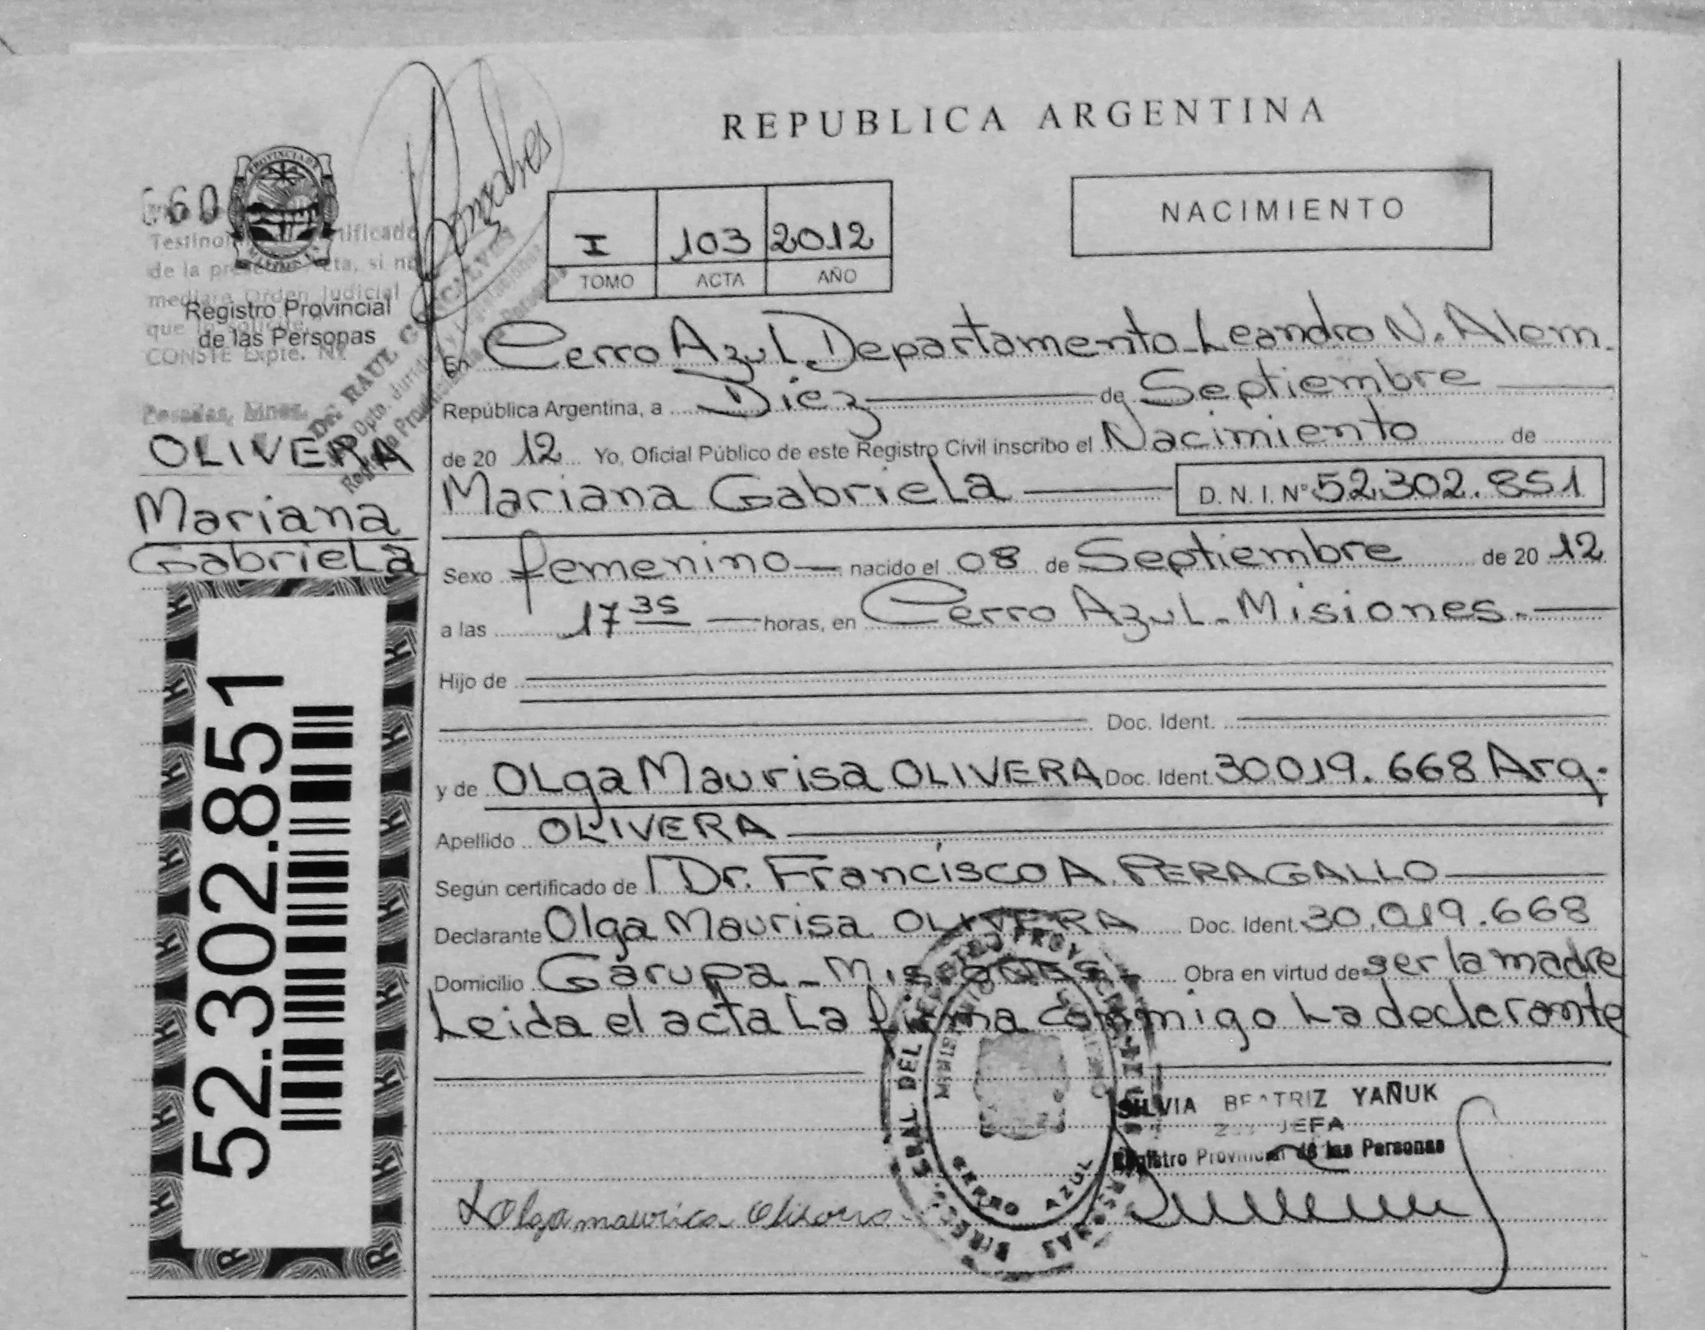 REPUBLICA ARGENTINA
NACIMIENTO
I 103 2012
TOMO ACTA AÑO
60
Registro Provincial
de las Personas
de la
mediare Orden Judicial
que lo solicite.
CONSTE Expte. Nº
Posadas, Mnes.
Dr. RAUL
OLIVERA
Mariana
Gabriela
52.302.851
En Cerro Azul Departamento Leandro N. Alem.
República Argentina, a Diez de Septiembre
de 20 12 Yo, Oficial Público de este Registro Civil inscribo el Nacimiento de
Mariana Gabriela D. N. I. Nº 52.302.851
Sexo femenino nacido el 08 de Septiembre de 20 12
a las 17 35 horas, en Cerro Azul - Misiones.
Hijo de
Doc. Ident.
y de Olga Maurisa OLIVERA Doc. Ident. 30.019.668 Arg.
Apellido OLIVERA
Según certificado de Dr. Francisco A. PERAGALLO
Declarante Olga Maurisa OLIVERA Doc. Ident. 30.019.668
Domicilio Garupa - Misiones Obra en virtud de ser la madre
Leida el acta la firma conmigo la declarante
SILVIA BEATRIZ YAÑUK
JEFA
Registro Provincial de las Personas
CERRO AZUL